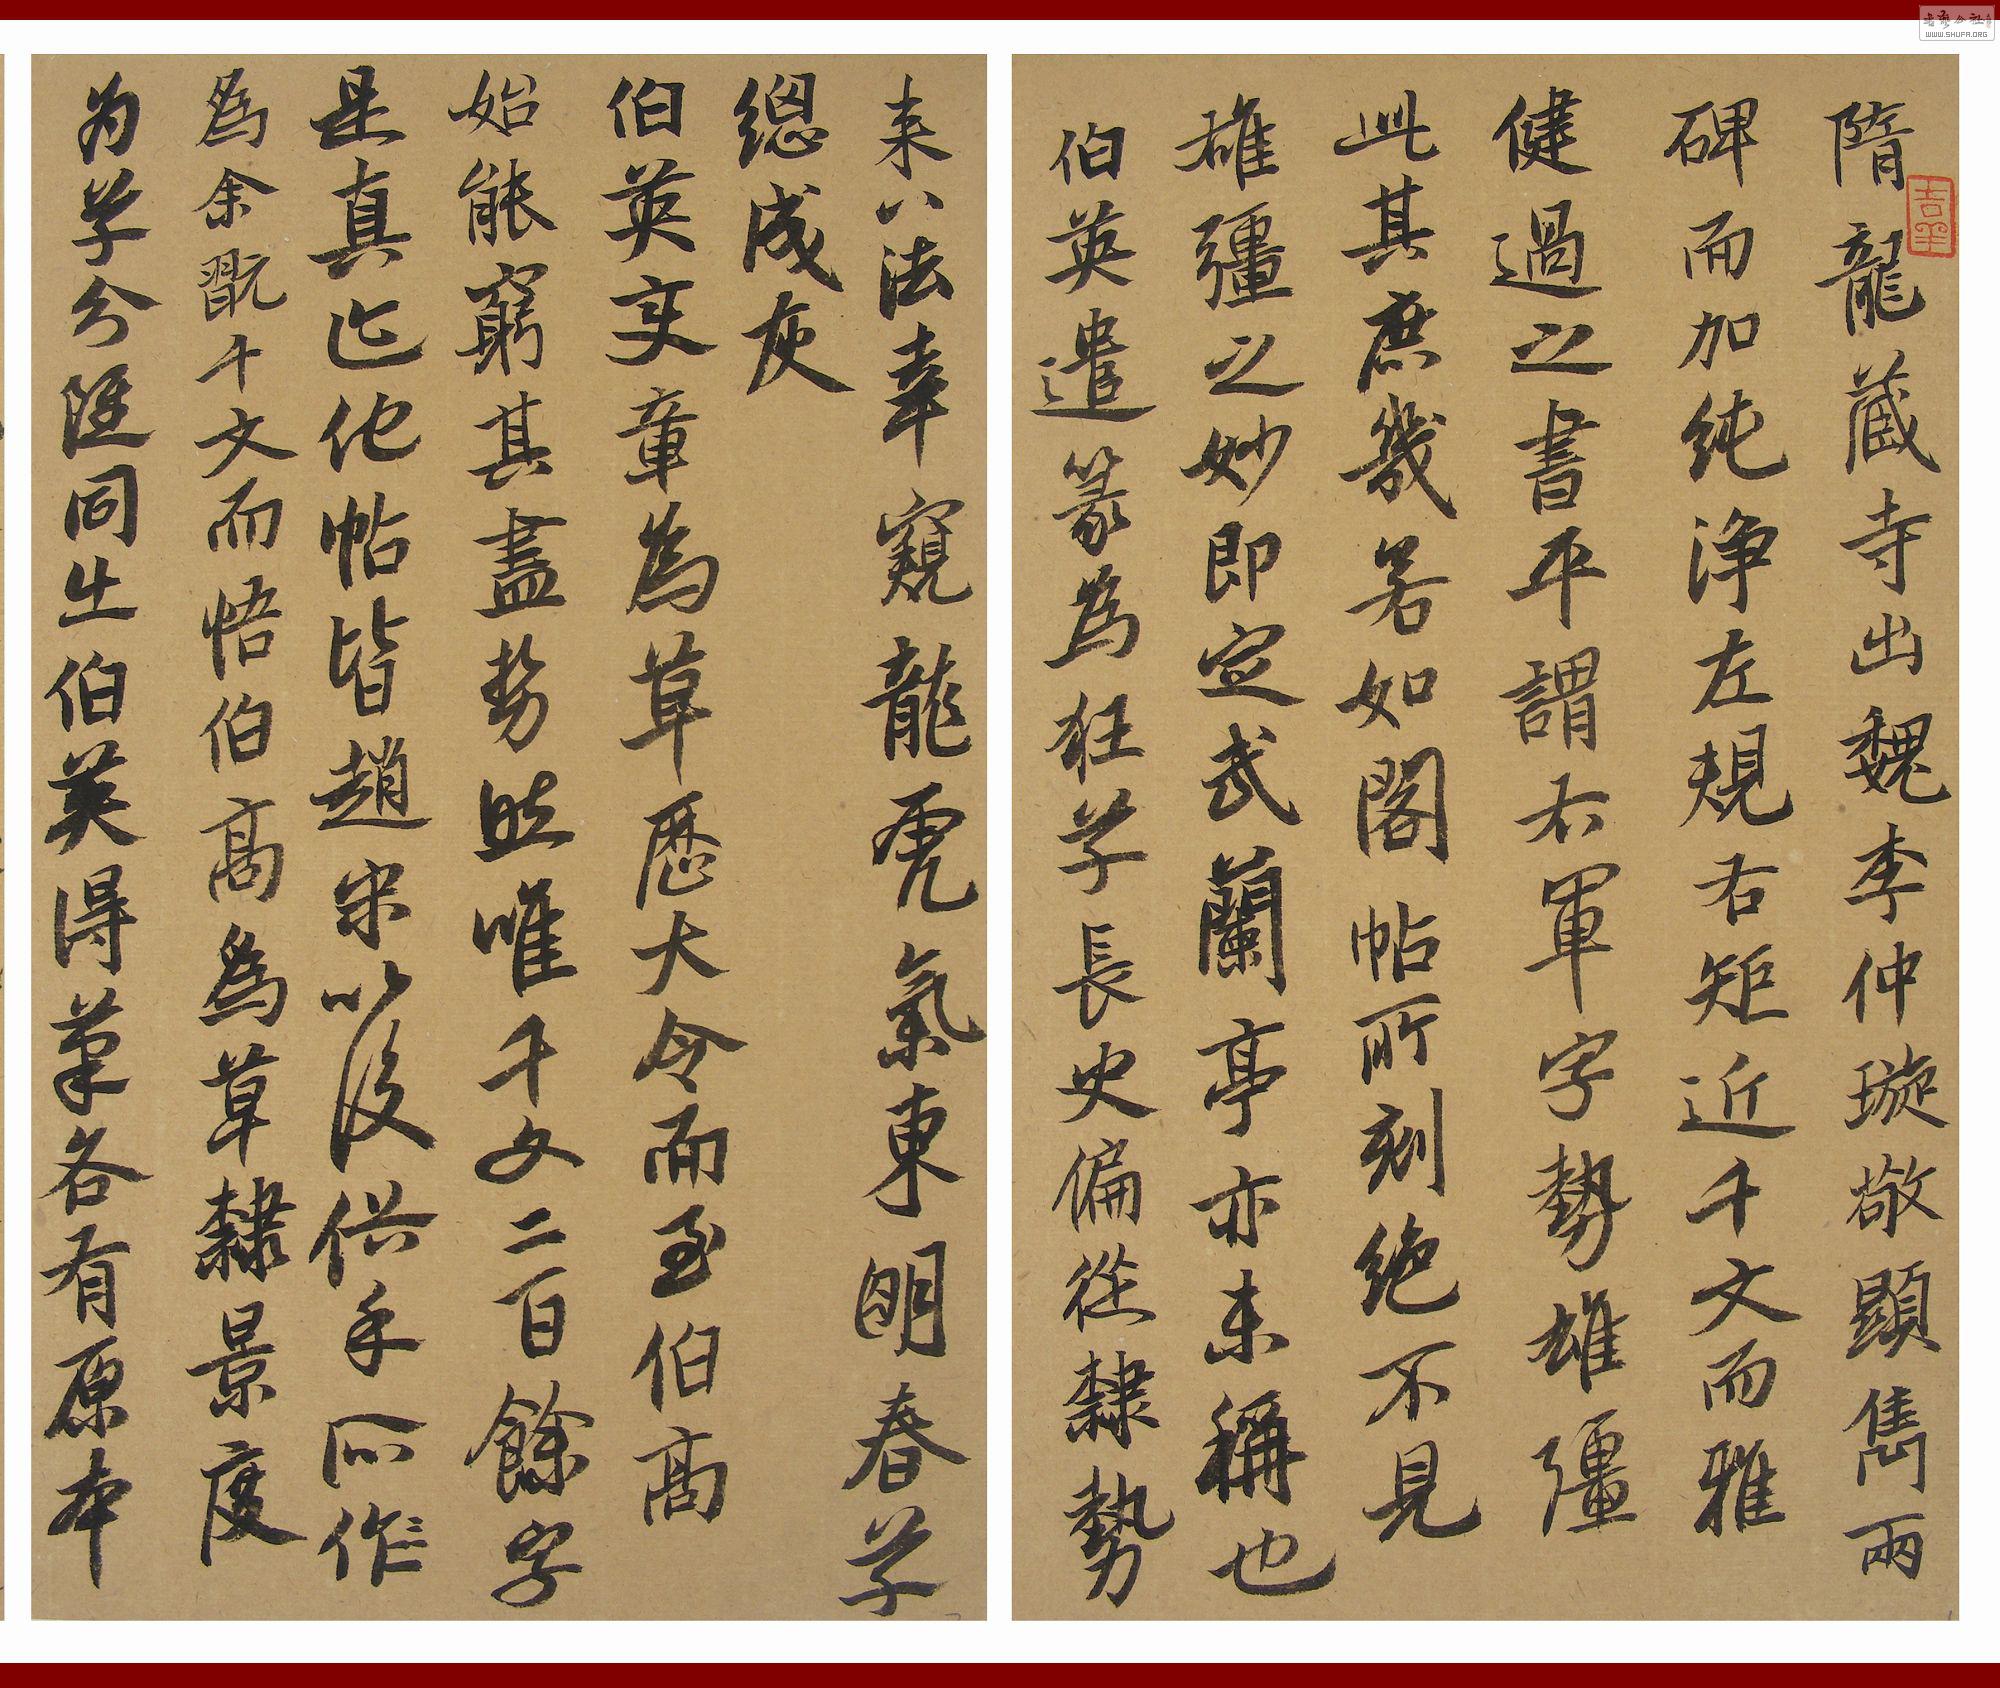 隋龍藏寺出魏李仲璇敬顯雋兩
碑而加純淨左規右矩近千文而雅
健過之書平謂右軍字勢雄彊
此其庶幾若如閣帖所刻绝不見
雄彊之妙即定武蘭亭亦未稱也
伯英遣篆為狂草長史偏從隸勢
来八法幸窺龍虎氣東明春草
總成灰
伯英变章為草歷大令而至伯高
始能窮其盡势然唯千文二百餘字
是真迹他帖皆趙宋以後俗手所作
為余翫千文而悟伯高為草隸景度
为草分雖同出伯英得筆各有原本
吉羊
書藝公社
WWW.SHUFA.ORG